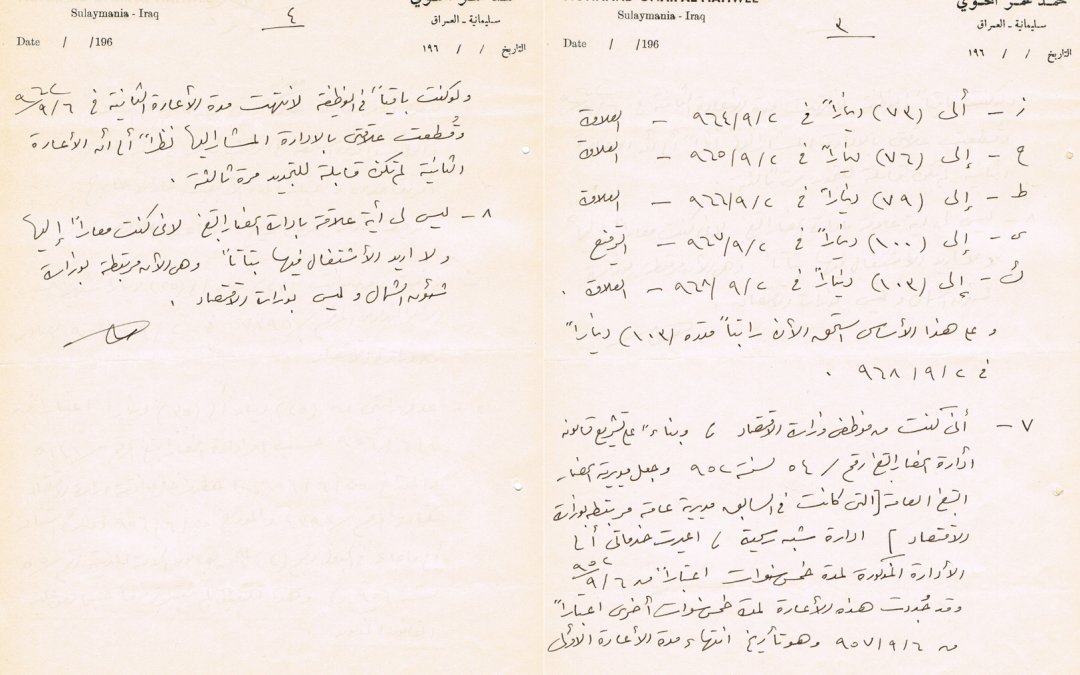 Sulaymania - Iraq
سليمانية - العراق
٣
Date / /196
التاريخ / / ١٩٦
ز - ألى (٧٣) ديناراً في ٩٦٤/٩/٢ - العلاوة
ح - إلى (٧٦) ديناراً في ٩٦٥/٩/٢ - العلاوة
ط - إلى (٧٩) ديناراً في ٩٦٦/٩/٢ - العلاوة
ي - إلى (١٠٠) ديناراً في ٩٦٧/٩/٢ - الترفيع
ك - إلى (١٠٣) ديناراً في ٩٦٨/٩/٢ - العلاوة .
وعلى هذا الأساس استحق الأن راتباً قدره (١٠٣) ديناراً
في ٩٦٨/٩/٢ .
٧ - أني كنت من موظفي وزارة الاقتصاد ، وبناءً على تشريع قانون
أدارة انحصار التبغ رقم / ٥٤ لسنة ٩٥٢ وجعل مديرية انحصار
التبغ العامة [التي كانت في السابق مديرية عامة مرتبطة بوزارة
الاقتصاد] ادارة شبه رسمية ، اعيرت خدماتي ألى
الأدارة المذكورة لمدة خمس سنوات اعتباراً من ٩٥٢/٩/٦
وقد جُددت هذه الأعارة لمدة خمس سنوات أخرى اعتباراً
من ٩٥٧/٩/٦ وهو تأريخ انتهاء مدة الأعارة الأولى
Sulaymania - Iraq
سليمانية - العراق
٤
Date / /196
التاريخ / / ١٩٦
ولو كنت باقياً في الوظيفة لانتهت مدة الأعارة الثانية في ٩٦٢/٩/٦
وقُطعت علاقتي بالادارة المشار اليها نظراً ألى أن الأعارة
الثانية لم تكن قابلة للتجديد مرة ثالثة .
٨ - ليس لي أية علاقة بادارة انحصار التبغ لاني كنت معاراً إليها
ولا اريد الأشتغال فيها بتاتاً وهي الأن مرتبطة بوزارة
شئون الشمال وليس بوزارة الاقتصاد .